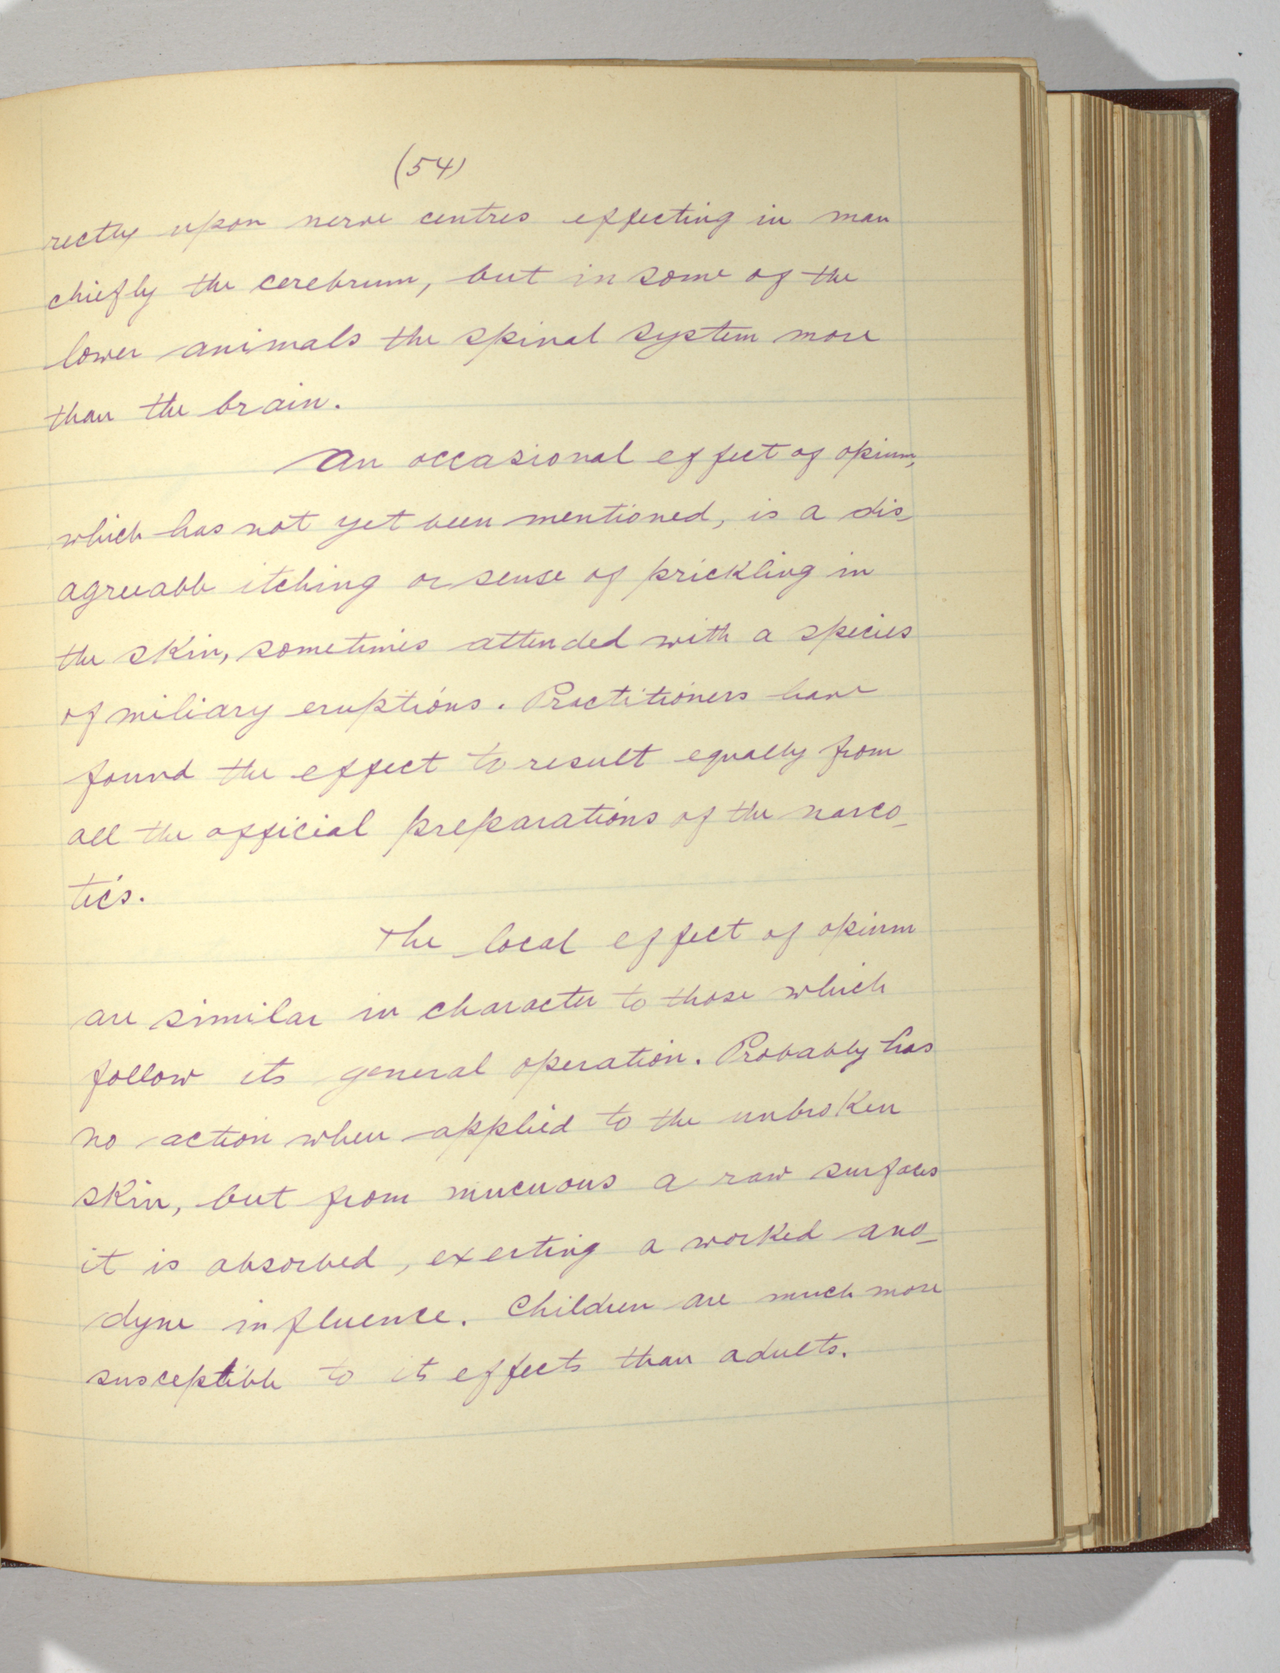 (54)
rectly upon nerve centres effecting in man
chiefly the cerebrum, but in some of the
lower animals the spinal system more
than the brain.
An occasional effect of opium,
which has not yet been mentioned, is a dis-
agreeable itching or sense of prickling in
the skin, sometimes attended with a species
of miliary eruptions. Practitioners have
found the effect to result equally from
all the official preparations of the narco-
tics.
The local effect of opium
are similar in character to those which
follow its general operation. Probably has
no action when applied to the unbroken
skin, but from mucuous a raw surfaces
it is absorbed, exerting a worked ano-
dyne influence. Children are much more
susceptible to it effects than adults.